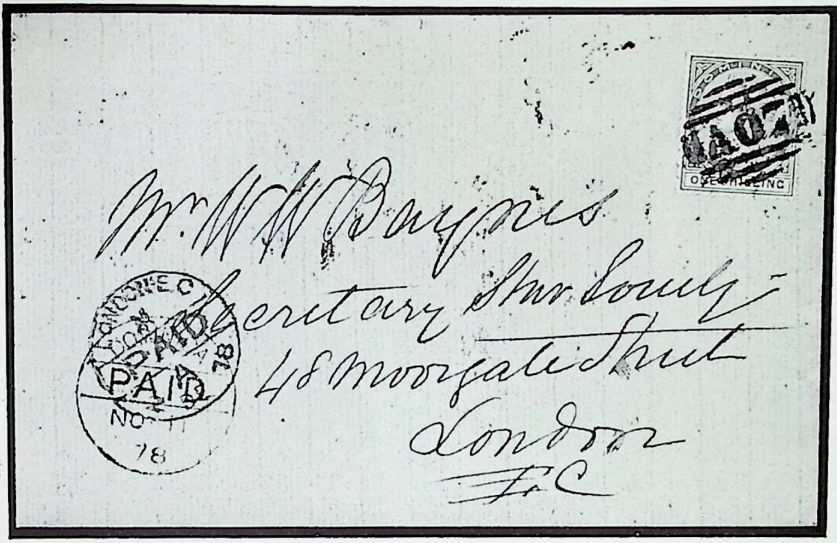 DOMINICA
A07
ONE SHILLING
Mr. W W Baynes
Secretary Star Society
48 Moorgate Street
London
E. C
LONDON E.C
PAID
78
PAID
NO 11
78